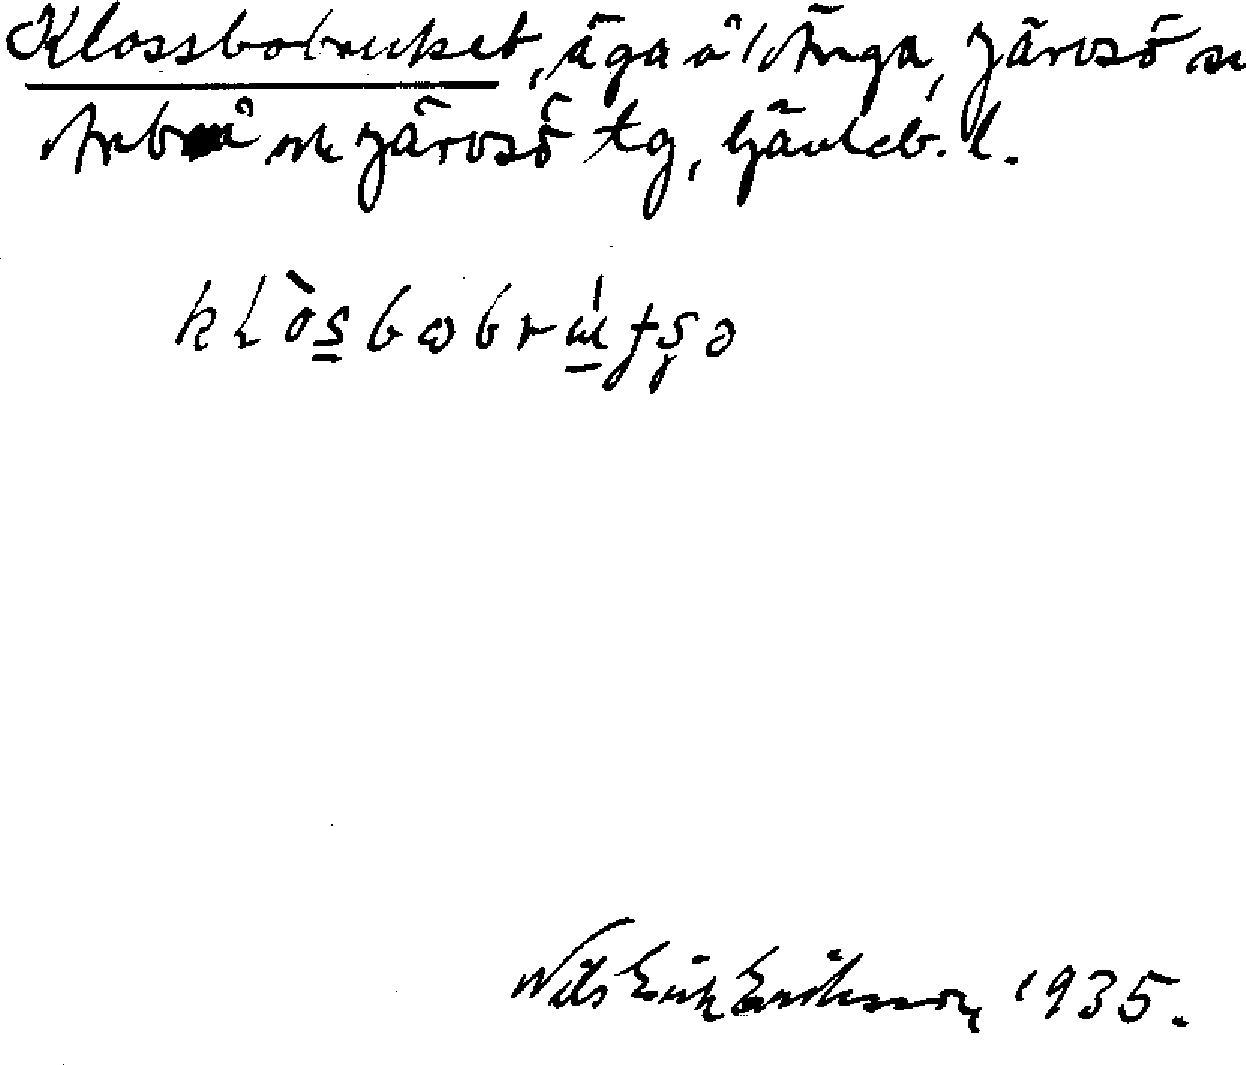 Klossbobruket, äga å Änga, Järvsö sn
Arbrå Järvsö tg, Gävleb. l.
klòsbωbrɯ́fʂə
Nils Erik Eriksson 1935.